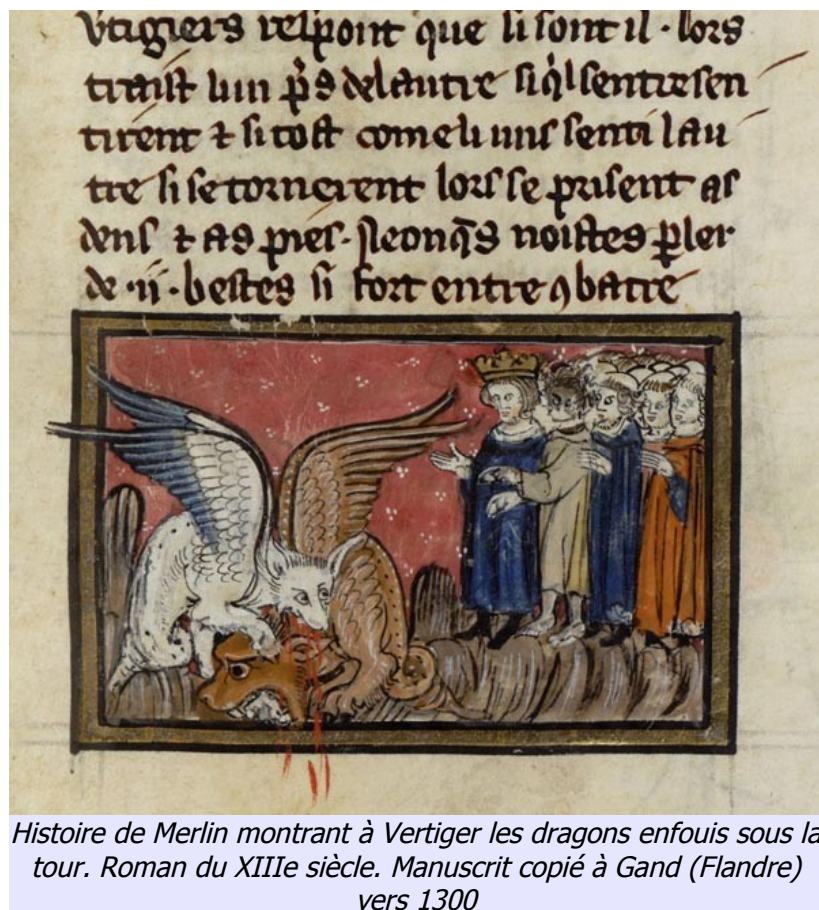 Vtigiers respont que si sont il · lors
traist lun pꝰ de lautre si qͥl sentresen
tirent ⁊ si tost come li uns senti lau
tre si se tornerent lors se prisent as
dens ⁊ as pies · onqꝰ noistes ꝑler
de · ij · bestes si fort entre ꝯbatre
Histoire de Merlin montrant à Vertiger les dragons enfouis sous la
tour. Roman du XIIIe siècle. Manuscrit copié à Gand (Flandre)
vers 1300